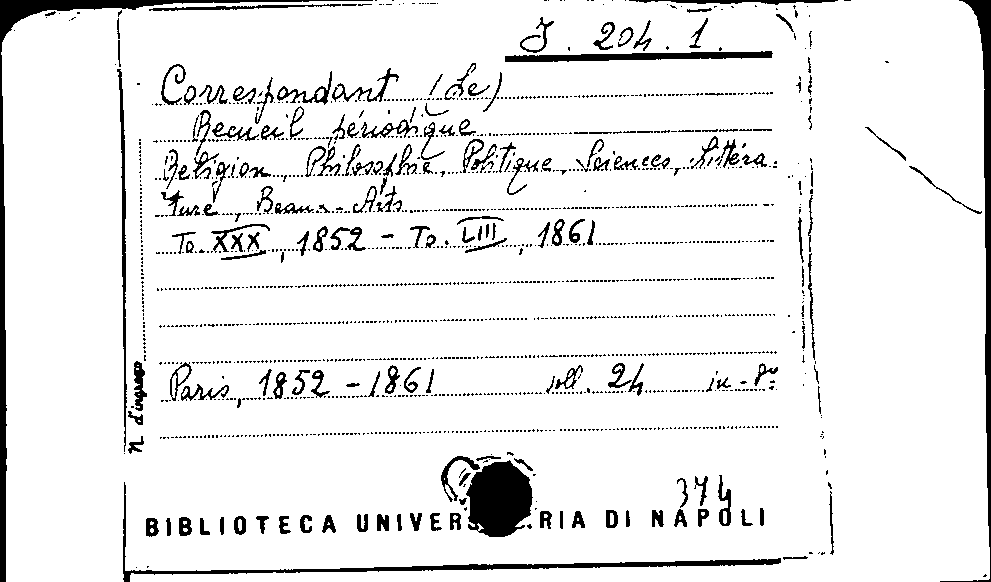 J. 204. 1.
Correspondant (Le)
Recueil périodique
Religion, Philosophie, Politique, Sciences, Littéra-
ture, Beaux-Arts
To. XXX, 1852 - To. LIII, 1861
Paris, 1852 - 1861 voll. 24 in-8º
N. d'ingresso
374
BIBLIOTECA UNIVERS RIA DI NAPOLI